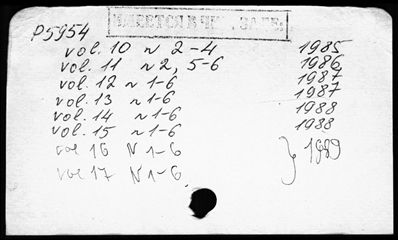 P5954
ИМЕЕТСЯ В ЧИТ. ЗАЛЕ
vol. 10 N 2-4 1985
vol. 11 N 2, 5-6 1986
vol. 12 N 1-6 1987
vol. 13 N 1-6 1987
vol. 14 N 1-6 1988
vol. 15 N 1-6 1988
vol 16 N 1-6
vol 17 N 1-6 } 1989